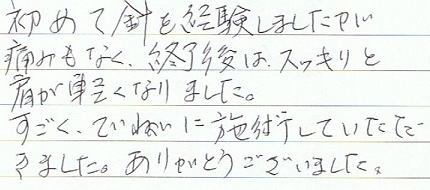 初めて針を経験しましたが
痛みもなく、終了後は、スッキリと
肩が軽くなりました。
すごく、ていねいに施術していただ
きました。ありがとうございました。